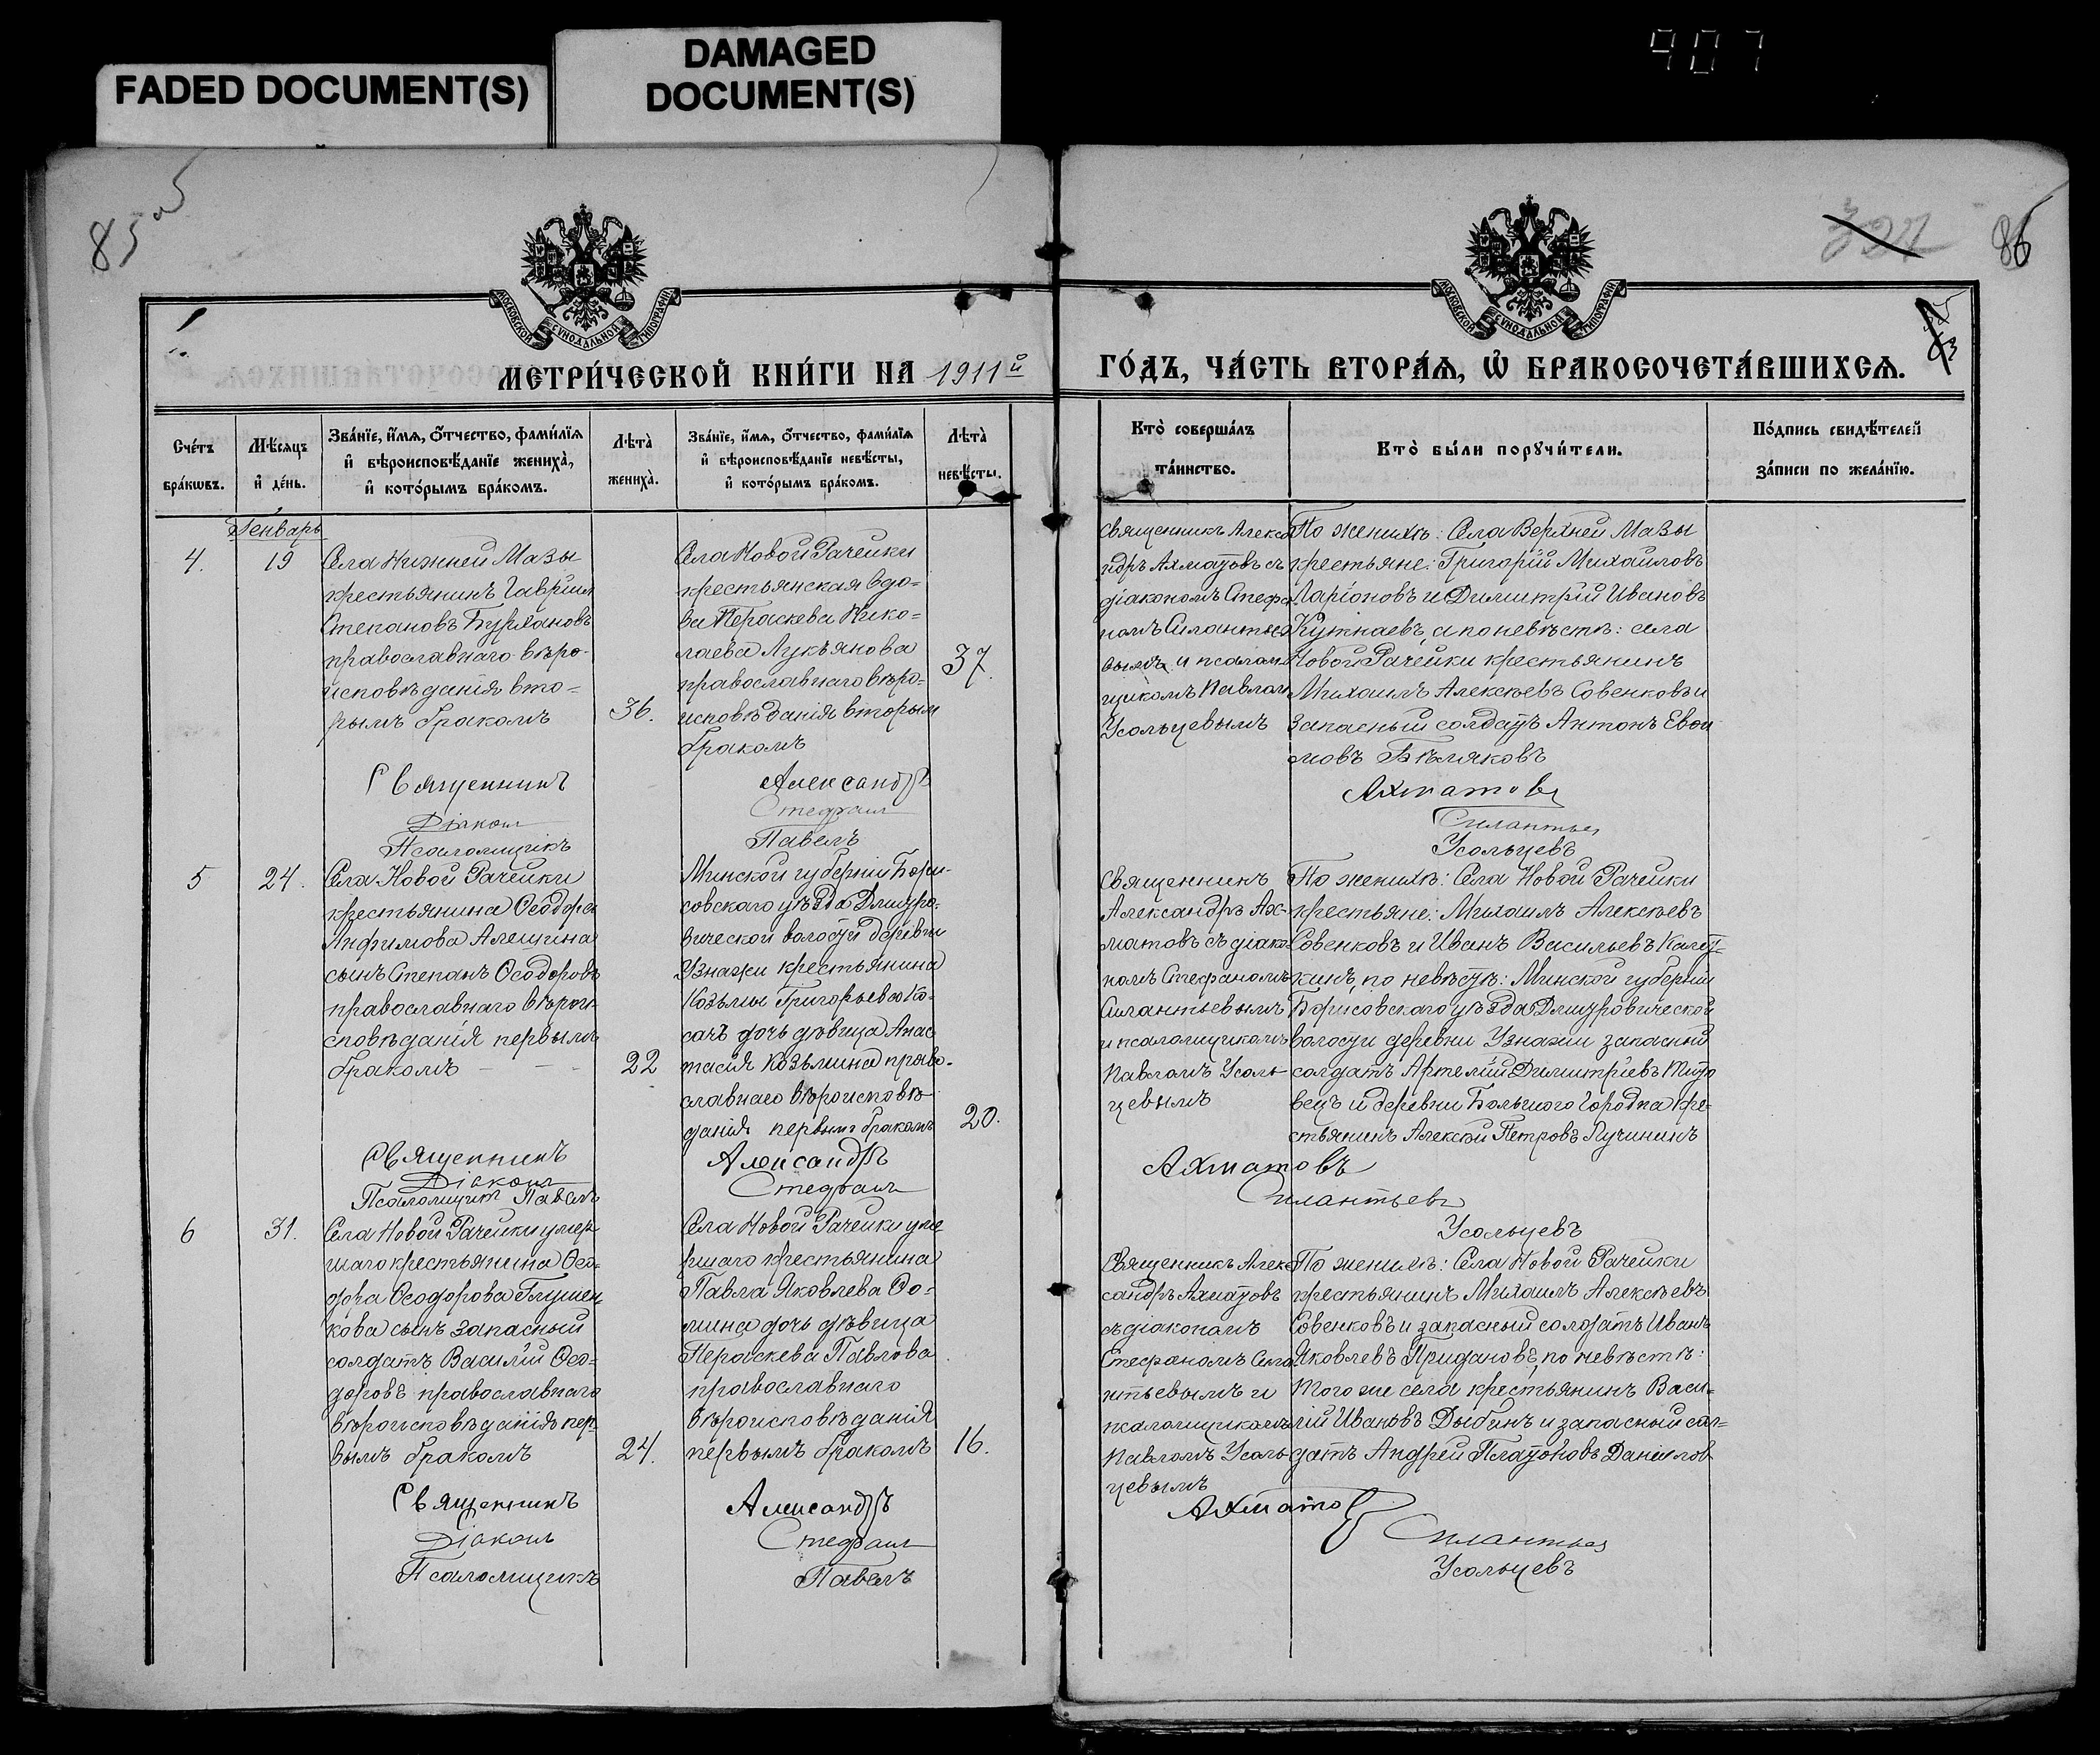 FADED DOCUMENT(S)
DAMAGED
DOCUMENT(S)
907
85 об
86
МОСКОВСКОЙ СѴНОДАЛЬНОЙ ТИПОГРАФІИ
МОСКОВСКОЙ СѴНОДАЛЬНОЙ ТИПОГРАФІИ
МЕТРИ́ЧЕСКОЙ КНИ́ГИ НА 1911й
ГО́ДЪ, ЧА́СТЬ ВТОРА́Ѧ, Ѽ БРАКОСОЧЕТА́ВШИХСѦ.
Сче́тъ
бра́кѡвъ.
Мѣ́сѧцъ
и҆ де́нь.
Зва́нїе, и҆́мѧ, ѻ҆́тчество, фами́лїѧ
и҆ вѣроисповѣ́данїе жениха̀,
и҆ кото́рымъ бра́комъ.
Лѣта̀
жениха̀.
Зва́нїе, и҆́мѧ, ѻ҆́тчество, фами́лїѧ
и҆ вѣроисповѣ́данїе невѣ́сты,
и҆ кото́рымъ бра́комъ.
Лѣта̀
невѣ́сты.
Кто̀ соверша́лъ
та́инство.
Кто̀ бы́ли порꙋчи́тели.
По́дпись свидѣ́телей
за́писи по жела́нїю.
Генварь
4.
19
Села Нижней Мазы
крестьянинъ Гавріилъ
Степановъ Бурхановъ
православнаго вѣро-
исповѣданія вто-
рымъ бракомъ
36.
Села Новой Рачейки
крестьянская вдо-
ва Пераскева Нико-
лаева Лукъянова
православнаго вѣро-
исповѣданія вторым
бракомъ
37.
Священникъ Алекса
ндръ Ахматовъ съ
діакономъ Стефа
номъ Силантье
вымъ и псалом
щикомъ Павлом
Усольцевымъ
По женихѣ: Села Верхней Мазы
крестьяне: Григорій Михайловъ
Ларіоновъ и Димитрій Ивановъ
Кутнаевъ, а по невѣстѣ: села
Новой Рачейки крестьянинъ
Михаилъ Алексѣевъ Совенковъ и
запасный солдатъ Антонъ Евои
мовъ Бѣляковъ
Священникъ Александръ Ахматовъ
Діаконъ Стефанъ Силантьев
Псаломщикъ Павелъ Усольцевъ
5
24.
Села Новой Рачейки
крестьянина Ѳеодора
Анфимова Алешина
сынъ Степанъ Ѳеодоровъ
православнаго вѣрои-
сповѣданія первымъ
бракомъ
22
Минской губерніи Бори-
совскаго уѣзда Дмитро-
вической волости деревни
Узнажи крестьянина
Козьмы Григорьева Ко-
сачъ дочь дѣвица Анас
тасія Козьмина право-
славнаго вѣроисповѣ-
данія первымъ бракомъ
20.
Священникъ
Александръ Ах-
матовъ съ діако
номъ Стефаномъ
Силантьевымъ
и псаломщикомъ
Павломъ Усоль-
цевымъ
По женихѣ: Села Новой Рачейки
крестьяне: Михаилъ Алексѣевъ
Совенковъ и Иванъ Васильевъ
кинъ, по невѣстѣ: Минской губерніи
Борисовскаго уѣзда Дмитровической
волости деревни Узнажи запасный
солдатъ Артемій Димитріевъ Тито
вецъ и деревни Большого Городна кре-
стьянинъ Алексѣй Петровъ Лучининъ
Священникъ Александръ Ахматовъ
Діаконъ Стефанъ Силантьевъ
Псаломщикъ Павелъ Усольцевъ
6
31.
Села Новой Рачейки умер
шаго крестьянина Ѳео-
дора Ѳеодорова Глушен
кова сынъ запасный
солдатъ Василій Ѳео-
доровъ православнаго
вѣроисповѣданія пер-
вымъ бракомъ
24.
Села Новой Рачейки уме
ршаго крестьянина
Павла Яковлева Ѳо-
мина дочь дѣвица
Пераскева Павлова
православнаго
вѣроисповѣданія
первымъ бракомъ
16.
Священникъ Алек
сандръ Ахматовъ
съ діакономъ
Стефаномъ Сила
нтьевымъ и
псаломщикомъ
Павломъ Усоль
цевымъ
По женихѣ: Села Новой Рачейки
крестьянинъ Михаилъ Алексѣевъ
Совенковъ и запасный солдатъ Иванъ
Яковлевъ Придановъ, по невѣстѣ:
того же села крестьянинъ Васи-
лій Ивановъ Дыбинъ и запасный сол-
датъ Андрей Платоновъ Данилов
Священникъ Александръ Ахматов
Діаконъ Стефанъ Силантьев
Псаломщикъ Павелъ Усольцевъ